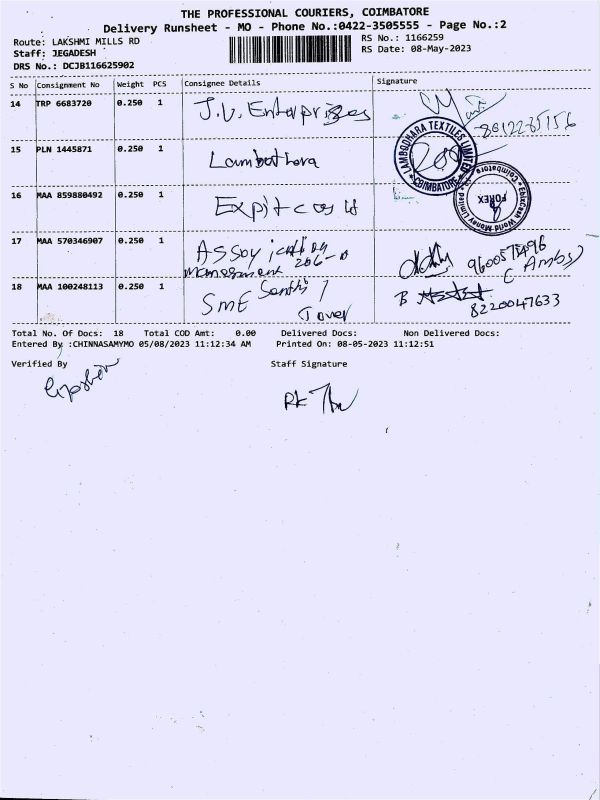 THE PROFESSIONAL COURIERS, COIMBATORE
Delivery Runsheet - MO - Phone No.:0422-3505555 - Page No.:2
Route: LAKSHMI MILLS RD
RS No.: 1166259
Staff: JEGADESH
RS Date: 08-May-2023
DRS No.: DCJB116625902
S No Consignment No Weight PCS Consignee Details Signature
14 TRP 6683720 0.250 1 J.V. Enterprises
15 PLN 1445871 0.250 1 Lambothara
LAMBODHARA TEXTILES LIMITED
* COIMBATORE *
16 MAA 859880492 0.250 1
EbixCash World Money Limited
Coimbatore
FOREX
17 MAA 570346907 0.250 1
206-
9600575496
18 MAA 100248113 0.250 1 SME
8220047633
Total No. Of Docs: 18 Total COD Amt: 0.00 Delivered Docs: Non Delivered Docs:
Entered By :CHINNASAMYMO 05/08/2023 11:12:34 AM Printed On: 08-05-2023 11:12:51
Verified By Staff Signature